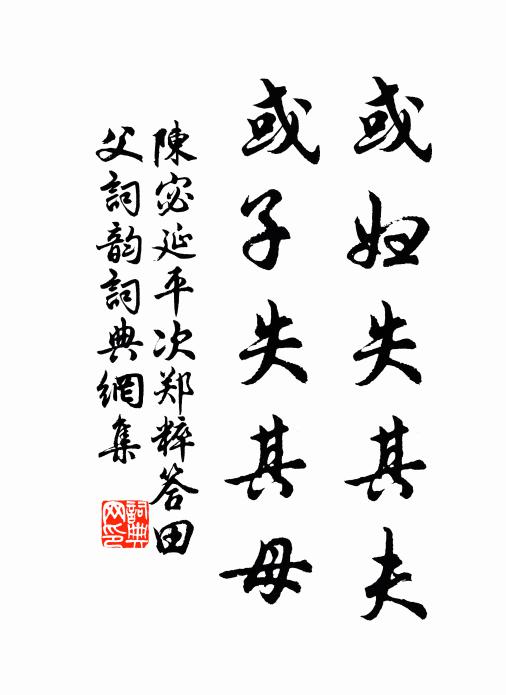 或妇失其夫
或子失其母
陳宓延平次郑粹答田
父詞韵詞典網集
詞典网印